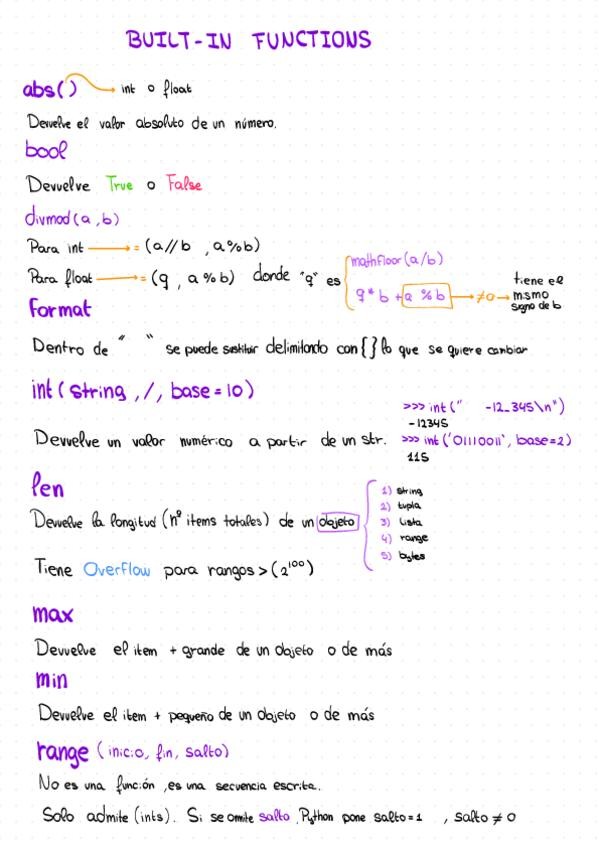 BUILT-IN FUNCTIONS
abs() int o float
Devuelve el valor absoluto de un número.
bool
Devuelve True o False
divmod(a,b)
Para int = (a//b , a%b)
Para float = (q, a%b) donde "q" es
math floor (a/b)
q*b + a%b ≠0 tiene el mismo signo de b
format
Dentro de " " se puede sustituir delimitando con {} lo que se quiere cambiar
int(string,/, base=10)
>>> int(" -12_345\n")
-12345
Devuelve un valor numérico a partir de un str.
>>> int('01110011', base=2)
115
len
Devuelve la longitud (nº items totales) de un objeto
1) string
2) tupla
3) lista
4) range
5) bytes
Tiene Overflow para rangos > (2¹⁰⁰)
max
Devuelve el item + grande de un objeto o de más
min
Devuelve el item + pequeño de un objeto o de más
range (inicio, fin, salto)
No es una función, es una secuencia escrita.
Solo admite (ints). Si se omite salto, Python pone salto=1 , salto ≠ 0